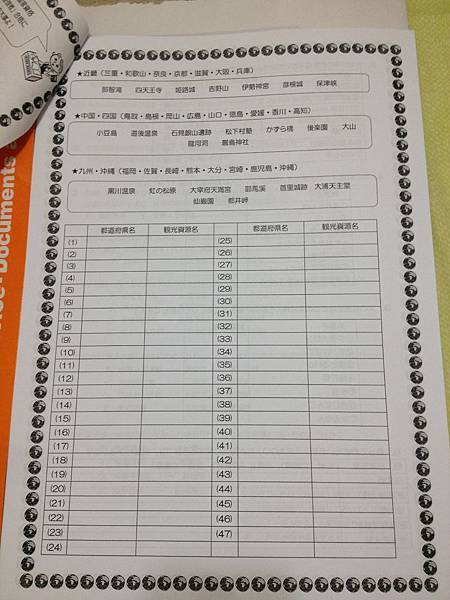 ★近畿(三重・和歌山・奈良・京都・滋賀・大阪・兵庫)
那智滝 四天王寺 姫路城 吉野山 伊勢神宮 彦根城 保津峡
★中国・四国(鳥取・島根・岡山・広島・山口・徳島・愛媛・香川・高知)
小豆島 道後温泉 石見銀山遺跡 松下村塾 かずら橋 後楽園 大山
龍河洞 厳島神社
★九州・沖縄(福岡・佐賀・長崎・熊本・大分・宮崎・鹿児島・沖縄)
黒川温泉 虹の松原 大宰府天満宮 耶馬溪 首里城跡 大浦天主堂
仙巌園 都井岬
都道府県名 観光資源名 都道府県名 観光資源名
(1) (25)
(2) (26)
(3) (27)
(4) (28)
(5) (29)
(6) (30)
(7) (31)
(8) (32)
(9) (33)
(10) (34)
(11) (35)
(12) (36)
(13) (37)
(14) (38)
(15) (39)
(16) (40)
(17) (41)
(18) (42)
(19) (43)
(20) (44)
(21) (45)
(22) (46)
(23) (47)
(24)
Documents